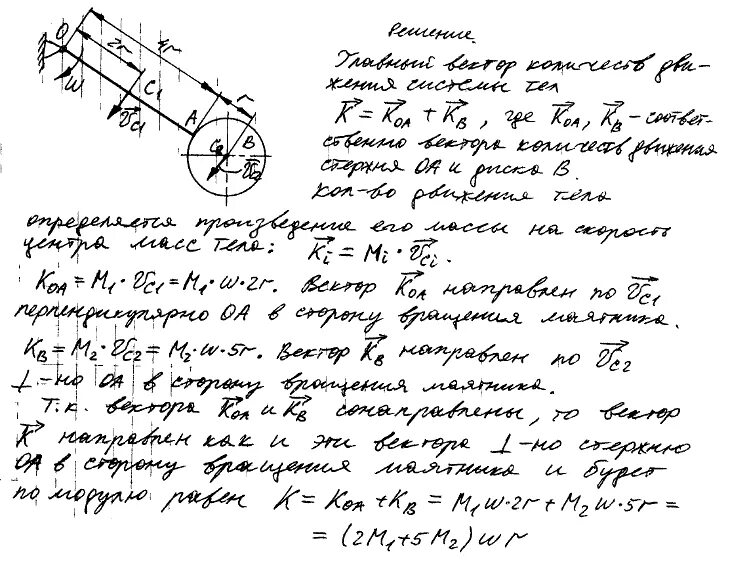 Решение.
O
2r
4r
r
ω
C1
V⃗C1
A
C2
B
V⃗C2
Главный вектор количеств дви-
жения системы тел
K⃗ = K⃗OA + K⃗B, где K⃗OA, K⃗B – соответ-
ственно вектора количеств движения
стержня OA и диска B.
Кол-во движения тела
определяется произведение его массы на скорость
центра масс тела: K⃗i = Mi · V⃗Ci.
KOA = M1 · VC1 = M1 · ω · 2r. Вектор K⃗OA направлен по V⃗C1
перпендикулярно OA в сторону вращения маятника.
KB = M2 · VC2 = M2 · ω · 5r. Вектор K⃗B направлен по V⃗C2
⊥-но OA в сторону вращения маятника.
Т.к. вектора K⃗OA и K⃗B сонаправлены, то вектор
K⃗ направлен как и эти вектора ⊥-но стержню
OA в сторону вращения маятника и будет
по модулю равен K = KOA + KB = M1ω·2r + M2ω·5r =
= (2M1+5M2)ωr